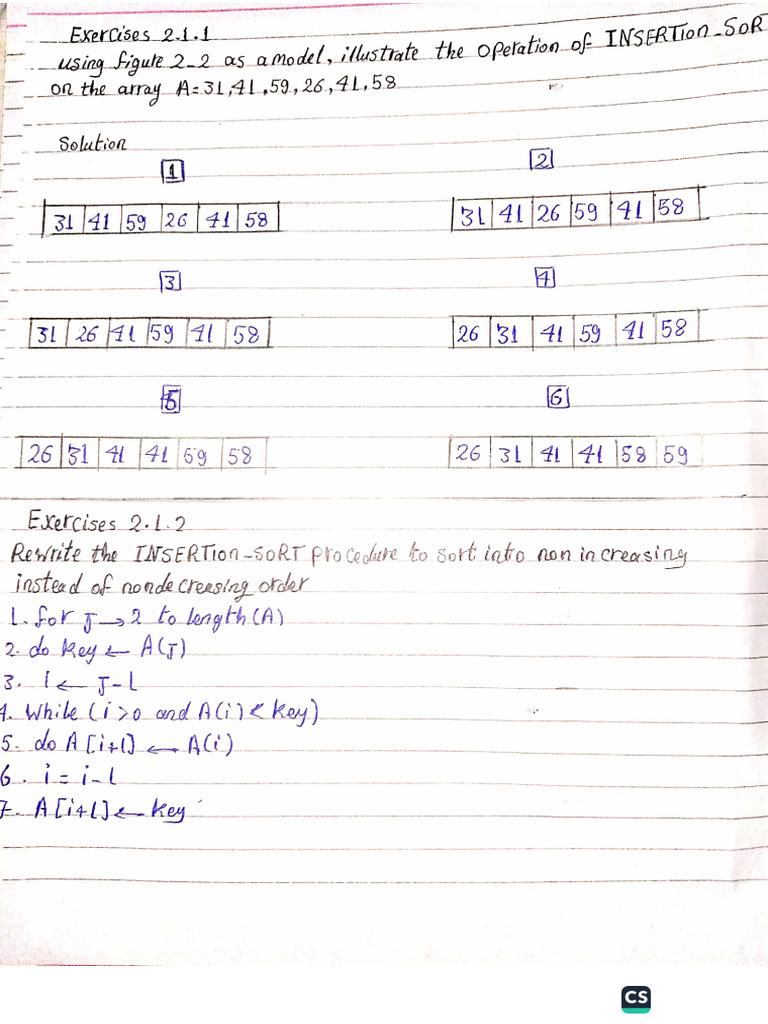 Exercises 2.1.1
using figure 2-2 as a model, illustrate the operation of INSERTION_SOR
on the array A=31,41,59,26,41,58
Solution
1
2
31 41 59 26 41 58
31 41 26 59 41 58
3
4
31 26 41 59 41 58
26 31 41 59 41 58
5
6
26 31 41 41 59 58
26 31 41 41 58 59
Exercises 2.1.2
Rewrite the INSERTION_SORT procedure to sort into non increasing
instead of nondecreasing order
1. for J → 2 to length(A)
2. do key ← A(J)
3. I ← J-1
4. While (i>0 and A(i) < key)
5. do A[i+1] ← A(i)
6. i = i-1
7. A[i+1] ← key
CS